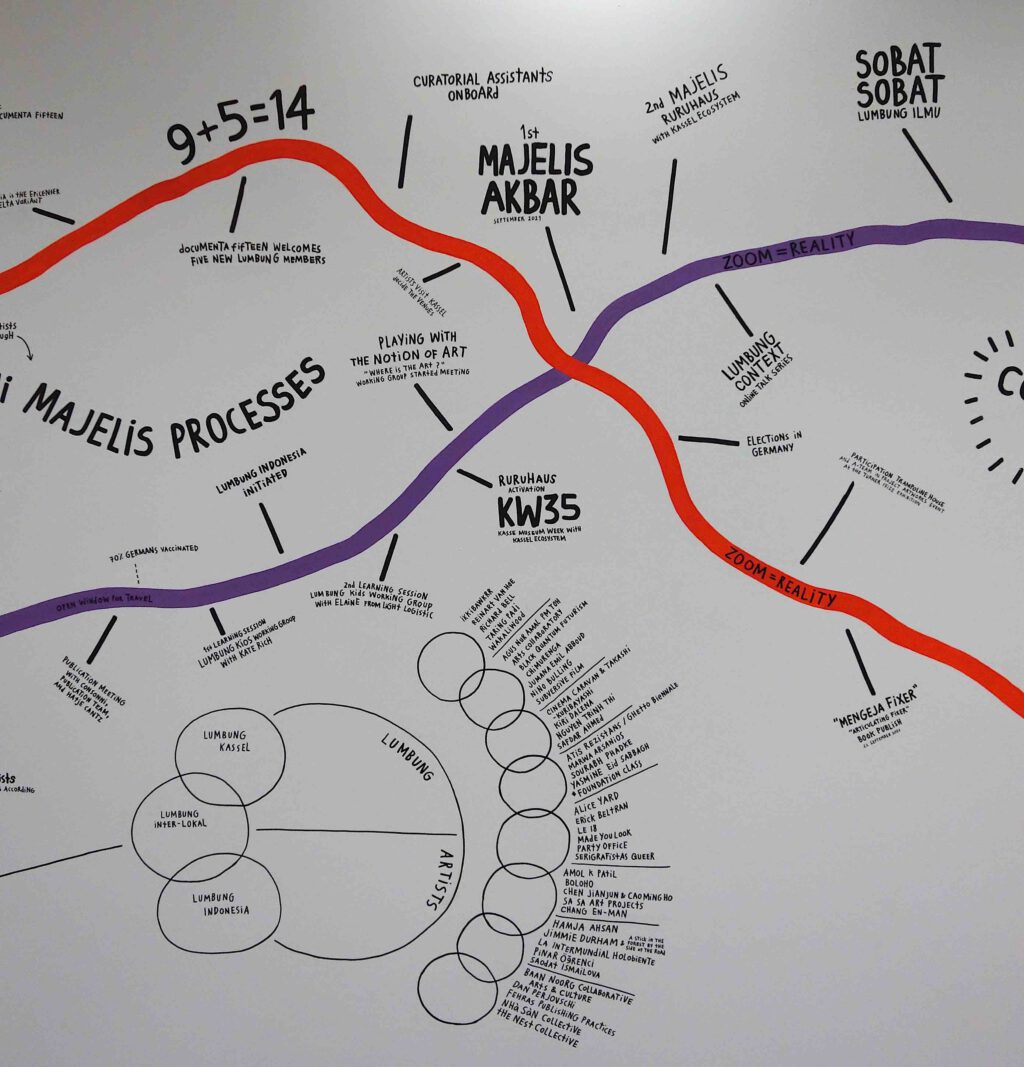 DOCUMENTA FIFTEEN
9+5=14
CURATORIAL ASSISTANTS
ONBOARD
1st
MAJELIS
AKBAR
SEPTEMBER 2021
2nd MAJELIS
RURUHAUS
WITH KASSEL ECOSYSTEM
SOBAT
SOBAT
LUMBUNG ILMU
IS THE EPICENTER
DELTA VARIANT
DOCUMENTA FIFTEEN WELCOMES
FIVE NEW LUMBUNG MEMBERS
ARTISTS VISIT KASSEL
DECIDE THE VENUES
ZOOM = REALITY
PLAYING WITH
THE NOTION OF ART
"WHERE IS THE ART?"
WORKING GROUP STARTED MEETING
LUMBUNG
CONTEXT
ONLINE TALK SERIES
MAJELIS PROCESSES
ELECTIONS IN
GERMANY
LUMBUNG INDONESIA
INITIATED
RURUHAUS
ACTIVATION
KW35
KASSE MUSEUM WEEK WITH
KASSEL ECOSYSTEM
PARTICIPATION TRAMPOLINE HOUSE
AND A-TEAM IN PROJECT ARTWORKS EVENT
AS THE TURNER PRIZE EXHIBITION
70% GERMANS VACCINATED
OPEN WINDOW FOR TRAVEL
ZOOM = REALITY
2nd LEARNING SESSION
LUMBUNG KIDS WORKING GROUP
WITH ELAINE FROM LIGHT LOGISTIC
1st LEARNING SESSION
LUMBUNG KIDS WORKING GROUP
WITH KATE RICH
PUBLICATION MEETING
WITH CONSONNI,
PUBLICATION TEAM,
AND HATJE CANTZ
"MENGEJA FIXER"
"ARTICULATING FIXER"
BOOK PUBLISH
22 SEPTEMBER 2021
LUMBUNG
KASSEL
LUMBUNG
INTER-LOKAL
LUMBUNG
INDONESIA
LUMBUNG
ARTISTS
IKKIBAWIKRR
REINART VANHOE
RICHARD BELL
TARING PADI
WAKALIWOOD
AGUS NUR AMAL PM TOH
ARTS COLLABORATORY
BLACK QUANTUM FUTURISM
CHIMURENGA
JUMANA EMIL ABBOUD
NINO BULLING
SUBVERSIVE FILM
CINEMA CARAVAN & TAKASHI
KURIBAYASHI
KIRI DALENA
NGUYEN TRINH THI
SAFDAR AHMED
ATIS REZISTANS / GHETTO BIENNALE
MARWA ARSANIOS
SOURABH PHADKE
YASMINE EID SABBAGH
*FOUNDATION CLASS
ALICE YARD
ERICK BELTRAN
LE 18
MADE YOU LOOK
PARTY OFFICE
SERIGRAFISTAS QUEER
AMOL K PATIL
BOLOHO
CHEN JIANJUN & CAO MING HO
SA SA ART PROJECTS
CHANG EN-MAN
HAMJA AHSAN
JIMMIE DURHAM & A STICK IN THE
FOREST BY THE
SIDE OF THE ROAD
LA INTERMUNDIAL HOLOBIENTE
PINAR ÖĞRENCI
SAODAT ISMAILOVA
BAAN NOORG COLLABORATIVE
ARTS & CULTURE
DAN PERJOVSCHI
FEHRAS PUBLISHING PRACTICES
NHÀ SÀN COLLECTIVE
THE NEST COLLECTIVE
ACCORDING